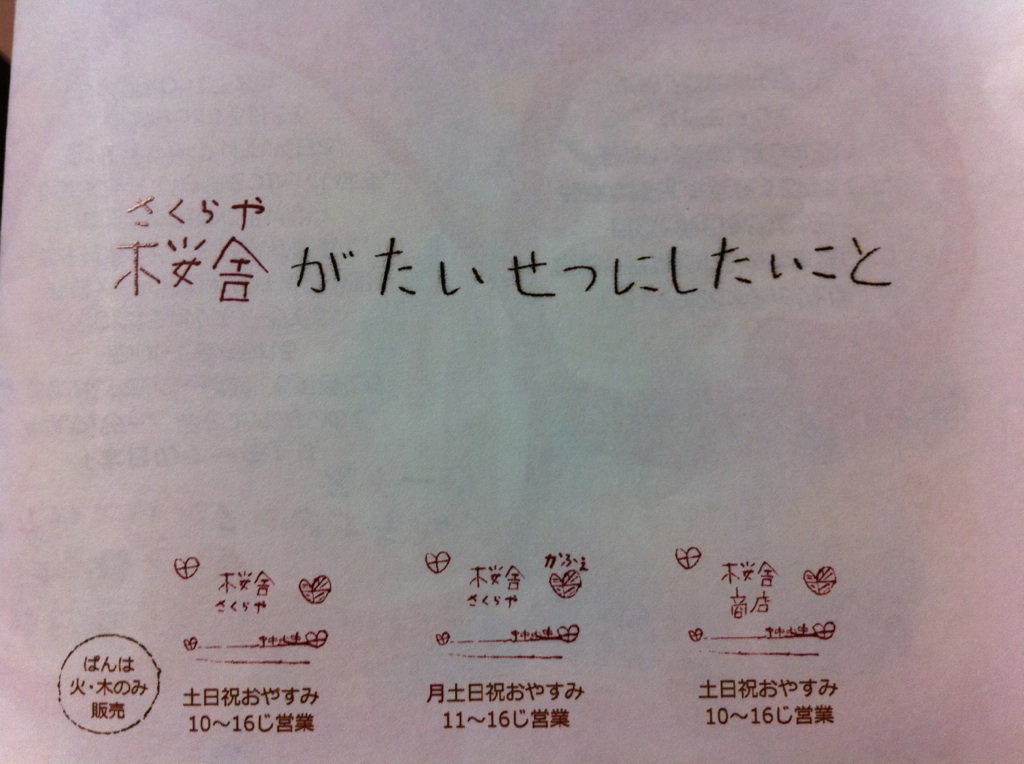 さくらや
桜舎がたいせつにしたいこと
桜舎
さくらや
土日祝おやすみ
10〜16じ営業
かふぇ
桜舎
さくらや
月土日祝おやすみ
11〜16じ営業
桜舎
商店
土日祝おやすみ
10〜16じ営業
ぱんは
火・木のみ
販売